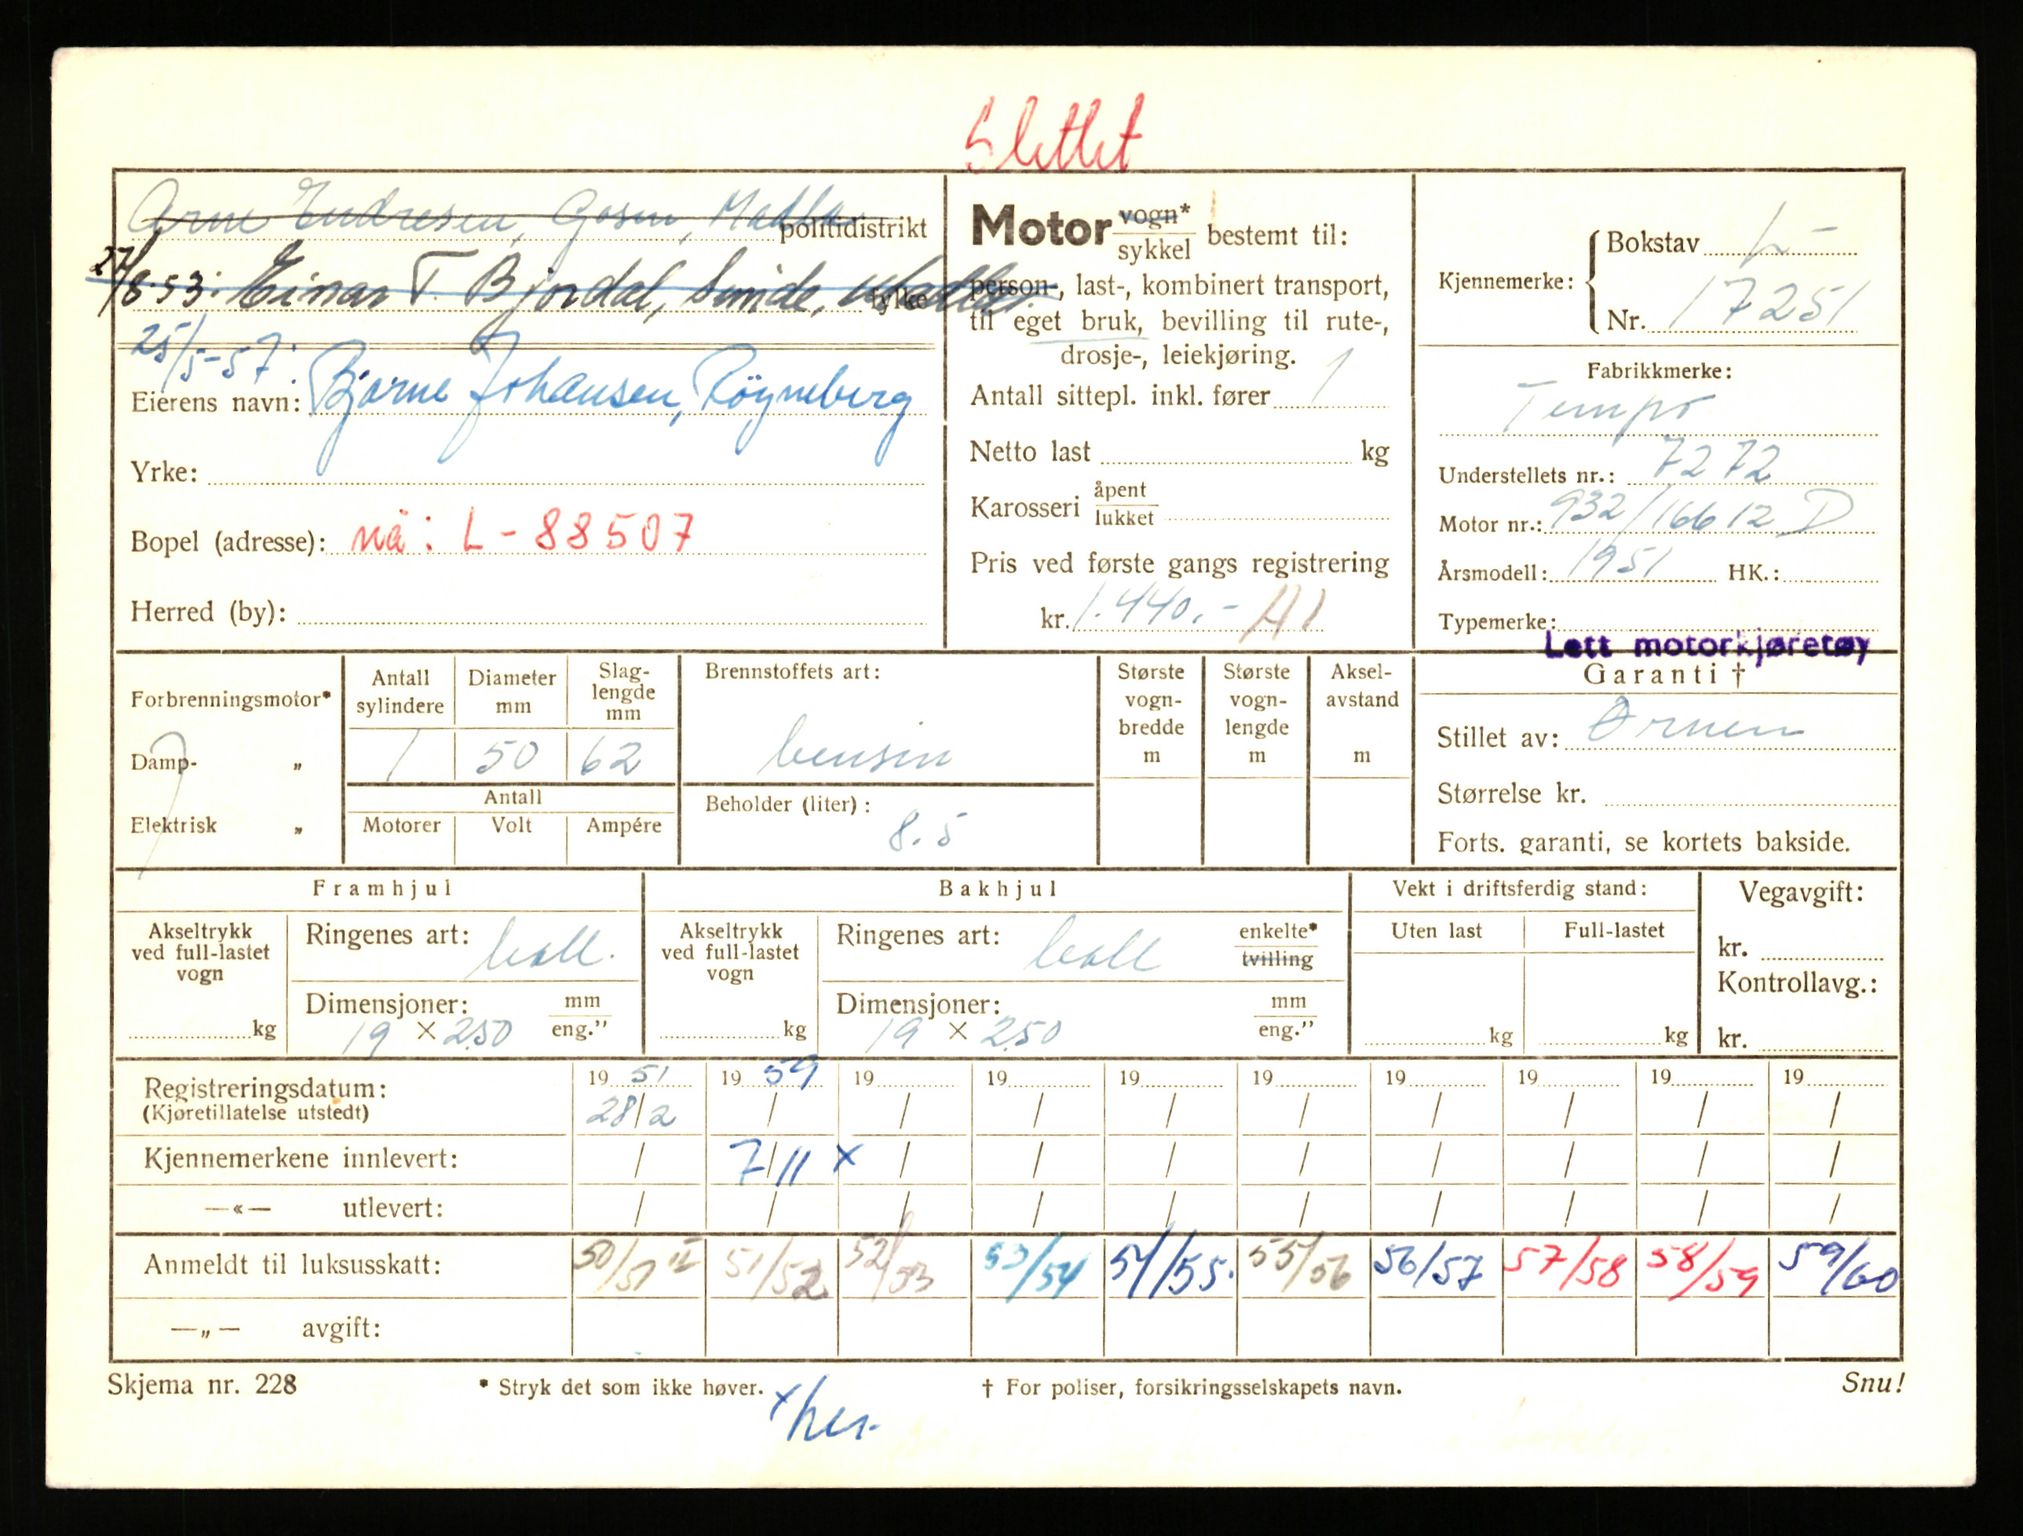 Slettet
Arne Endresen, Gosen, Madla politidistrikt
27/8.53: Einar T. Bjordal, Sunde, Madla. fylke
25/5-57:
Eierens navn: Bjarne Johansen, Röyneberg
Yrke:
Bopel (adresse): nå: L - 88507
Herred (by):
Motor vogn* / sykkel bestemt til:
person-, last-, kombinert transport,
til eget bruk, bevilling til rute-,
drosje-, leiekjøring.
Antall sittepl. inkl. fører 1
Netto last kg
Karosseri åpent / lukket
Pris ved første gangs registrering
kr. 1.440.- A1
Kjennemerke: Bokstav L-
Nr. 17251
Fabrikkmerke:
Tempo
Understellets nr.: 7272
Motor nr.: 932/16612 D
Årsmodell: 1951 HK.:
Typemerke:
Lett motorkjøretøy
Forbrenningsmotor*
Damp- „
Elektrisk „
Antall sylindere Diameter mm Slag-lengde mm
1 50 62
Antall
Motorer Volt Ampére
Brennstoffets art:
bensin
Beholder (liter):
8.5
Største vogn-bredde m
Største vogn-lengde m
Aksel-avstand m
Garanti †
Stillet av: Ørnen
Størrelse kr.
Forts. garanti, se kortets bakside.
Framhjul
Akseltrykk ved full-lastet vogn
kg
Ringenes art: ball.
Dimensjoner: mm / eng."
19 × 2.50
Bakhjul
Akseltrykk ved full-lastet vogn
kg
Ringenes art: ball enkelte* / tvilling
Dimensjoner: mm / eng."
19 × 2.50
Vekt i driftsferdig stand:
Uten last Full-lastet
kg kg
Vegavgift:
kr.
Kontrollavg.:
kr.
Registreringsdatum: 19 51 19 59 19 19 19 19 19 19 19 19
(Kjøretillatelse utstedt) 28/2 / / / / / / / / /
Kjennemerkene innlevert: / 7/11 x / / / / / / / /
—«— utlevert: / / / / / / / / / /
Anmeldt til luksusskatt: 50/51 II 51/52 52/53 53/54 54/55. 55/56 56/57 57/58 58/59 59/60
—„— avgift:
Skjema nr. 228 * Stryk det som ikke høver. † For poliser, forsikringsselskapets navn. Snu!
x her.